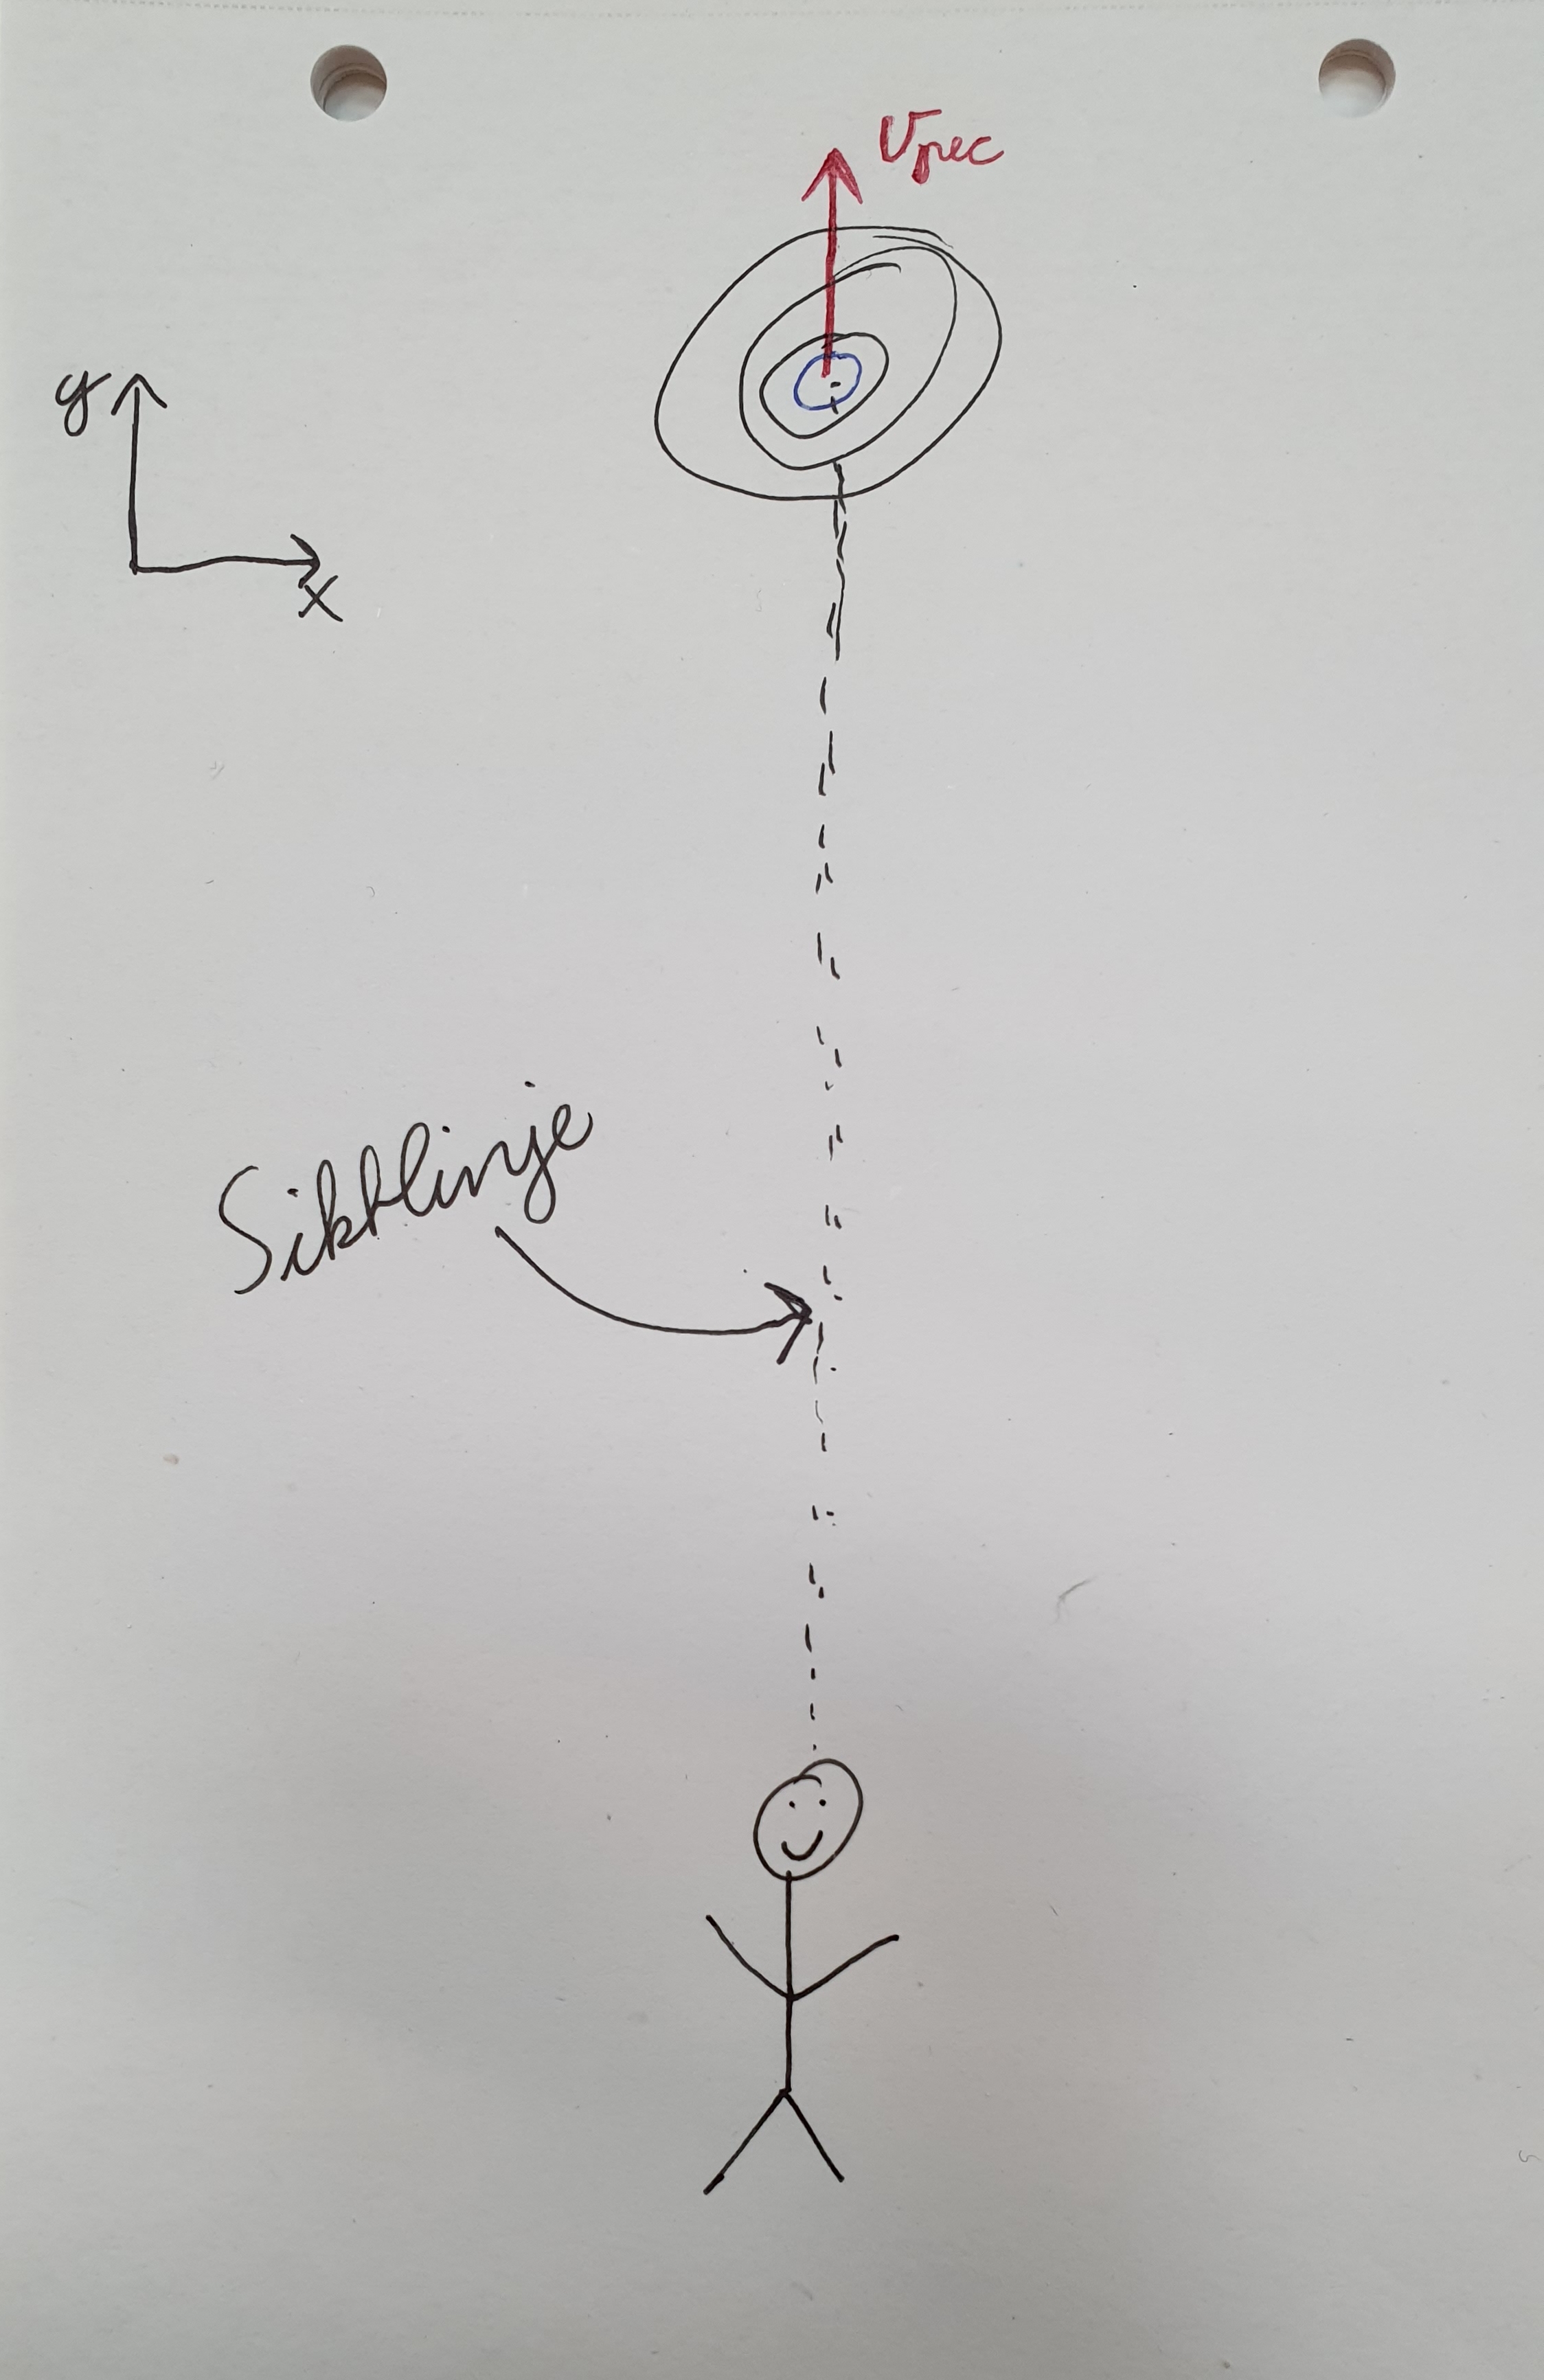 vpec
y
x
Siktlinje